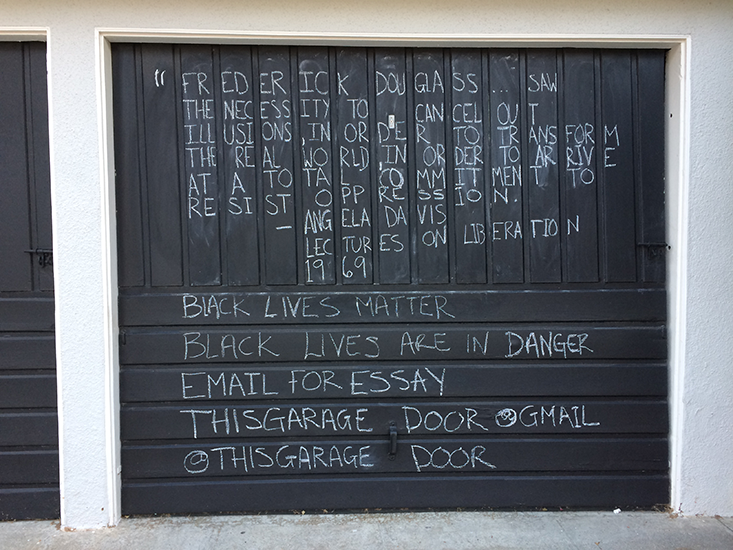 “ FREDERICK DOUGLASS... SAW
THE NECESSITY TO CANCEL OUT
ILLUSIONS, IN ORDER TO TRANSFORM
THE REAL WORLD, IN ORDER TO ARRIVE
AT A TOTAL COMMITMENT TO
RESIST OPPRESSION.
– ANGELA DAVIS
LECTURES ON LIBERATION
1969
BLACK LIVES MATTER
BLACK LIVES ARE IN DANGER
EMAIL FOR ESSAY
THISGARAGE DOOR @GMAIL
@THISGARAGE DOOR